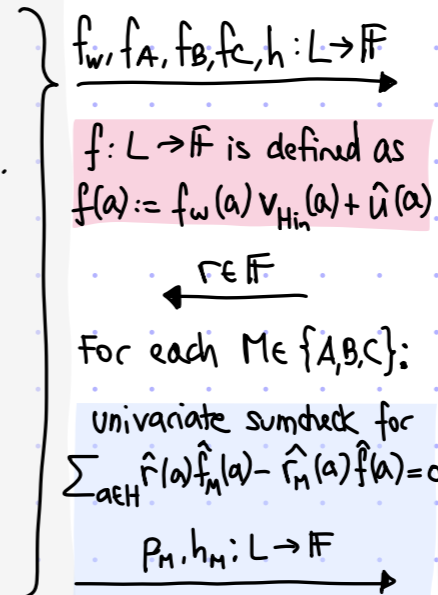 f_w, f_A, f_B, f_C, h : L → 𝔽
f : L → 𝔽 is defined as
f(a) := f_w(a) v_{H_in}(a) + û(a)
r ∈ 𝔽
For each M ∈ {A,B,C}:
univariate sumcheck for
∑_{a∈H} r̂(a) f̂_M(a) − r̂_M(a) f̂(a) = 0
p_M, h_M : L → 𝔽